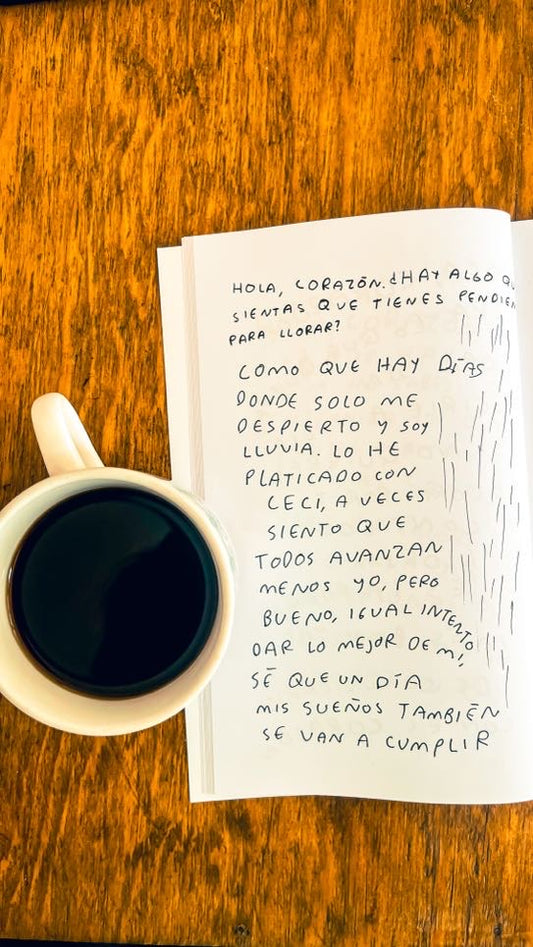 HOLA, CORAZÓN. ¿HAY ALGO QU
SIENTAS QUE TIENES PENDIEN
PARA LLORAR?
COMO QUE HAY DÍAS
DONDE SOLO ME
DESPIERTO Y SOY
LLUVIA. LO HE
PLATICADO CON
CECI, A VECES
SIENTO QUE
TODOS AVANZAN
MENOS YO, PERO
BUENO, IGUAL INTENTO
DAR LO MEJOR DE MÍ,
SÉ QUE UN DÍA
MIS SUEÑOS TAMBIÉN
SE VAN A CUMPLIR